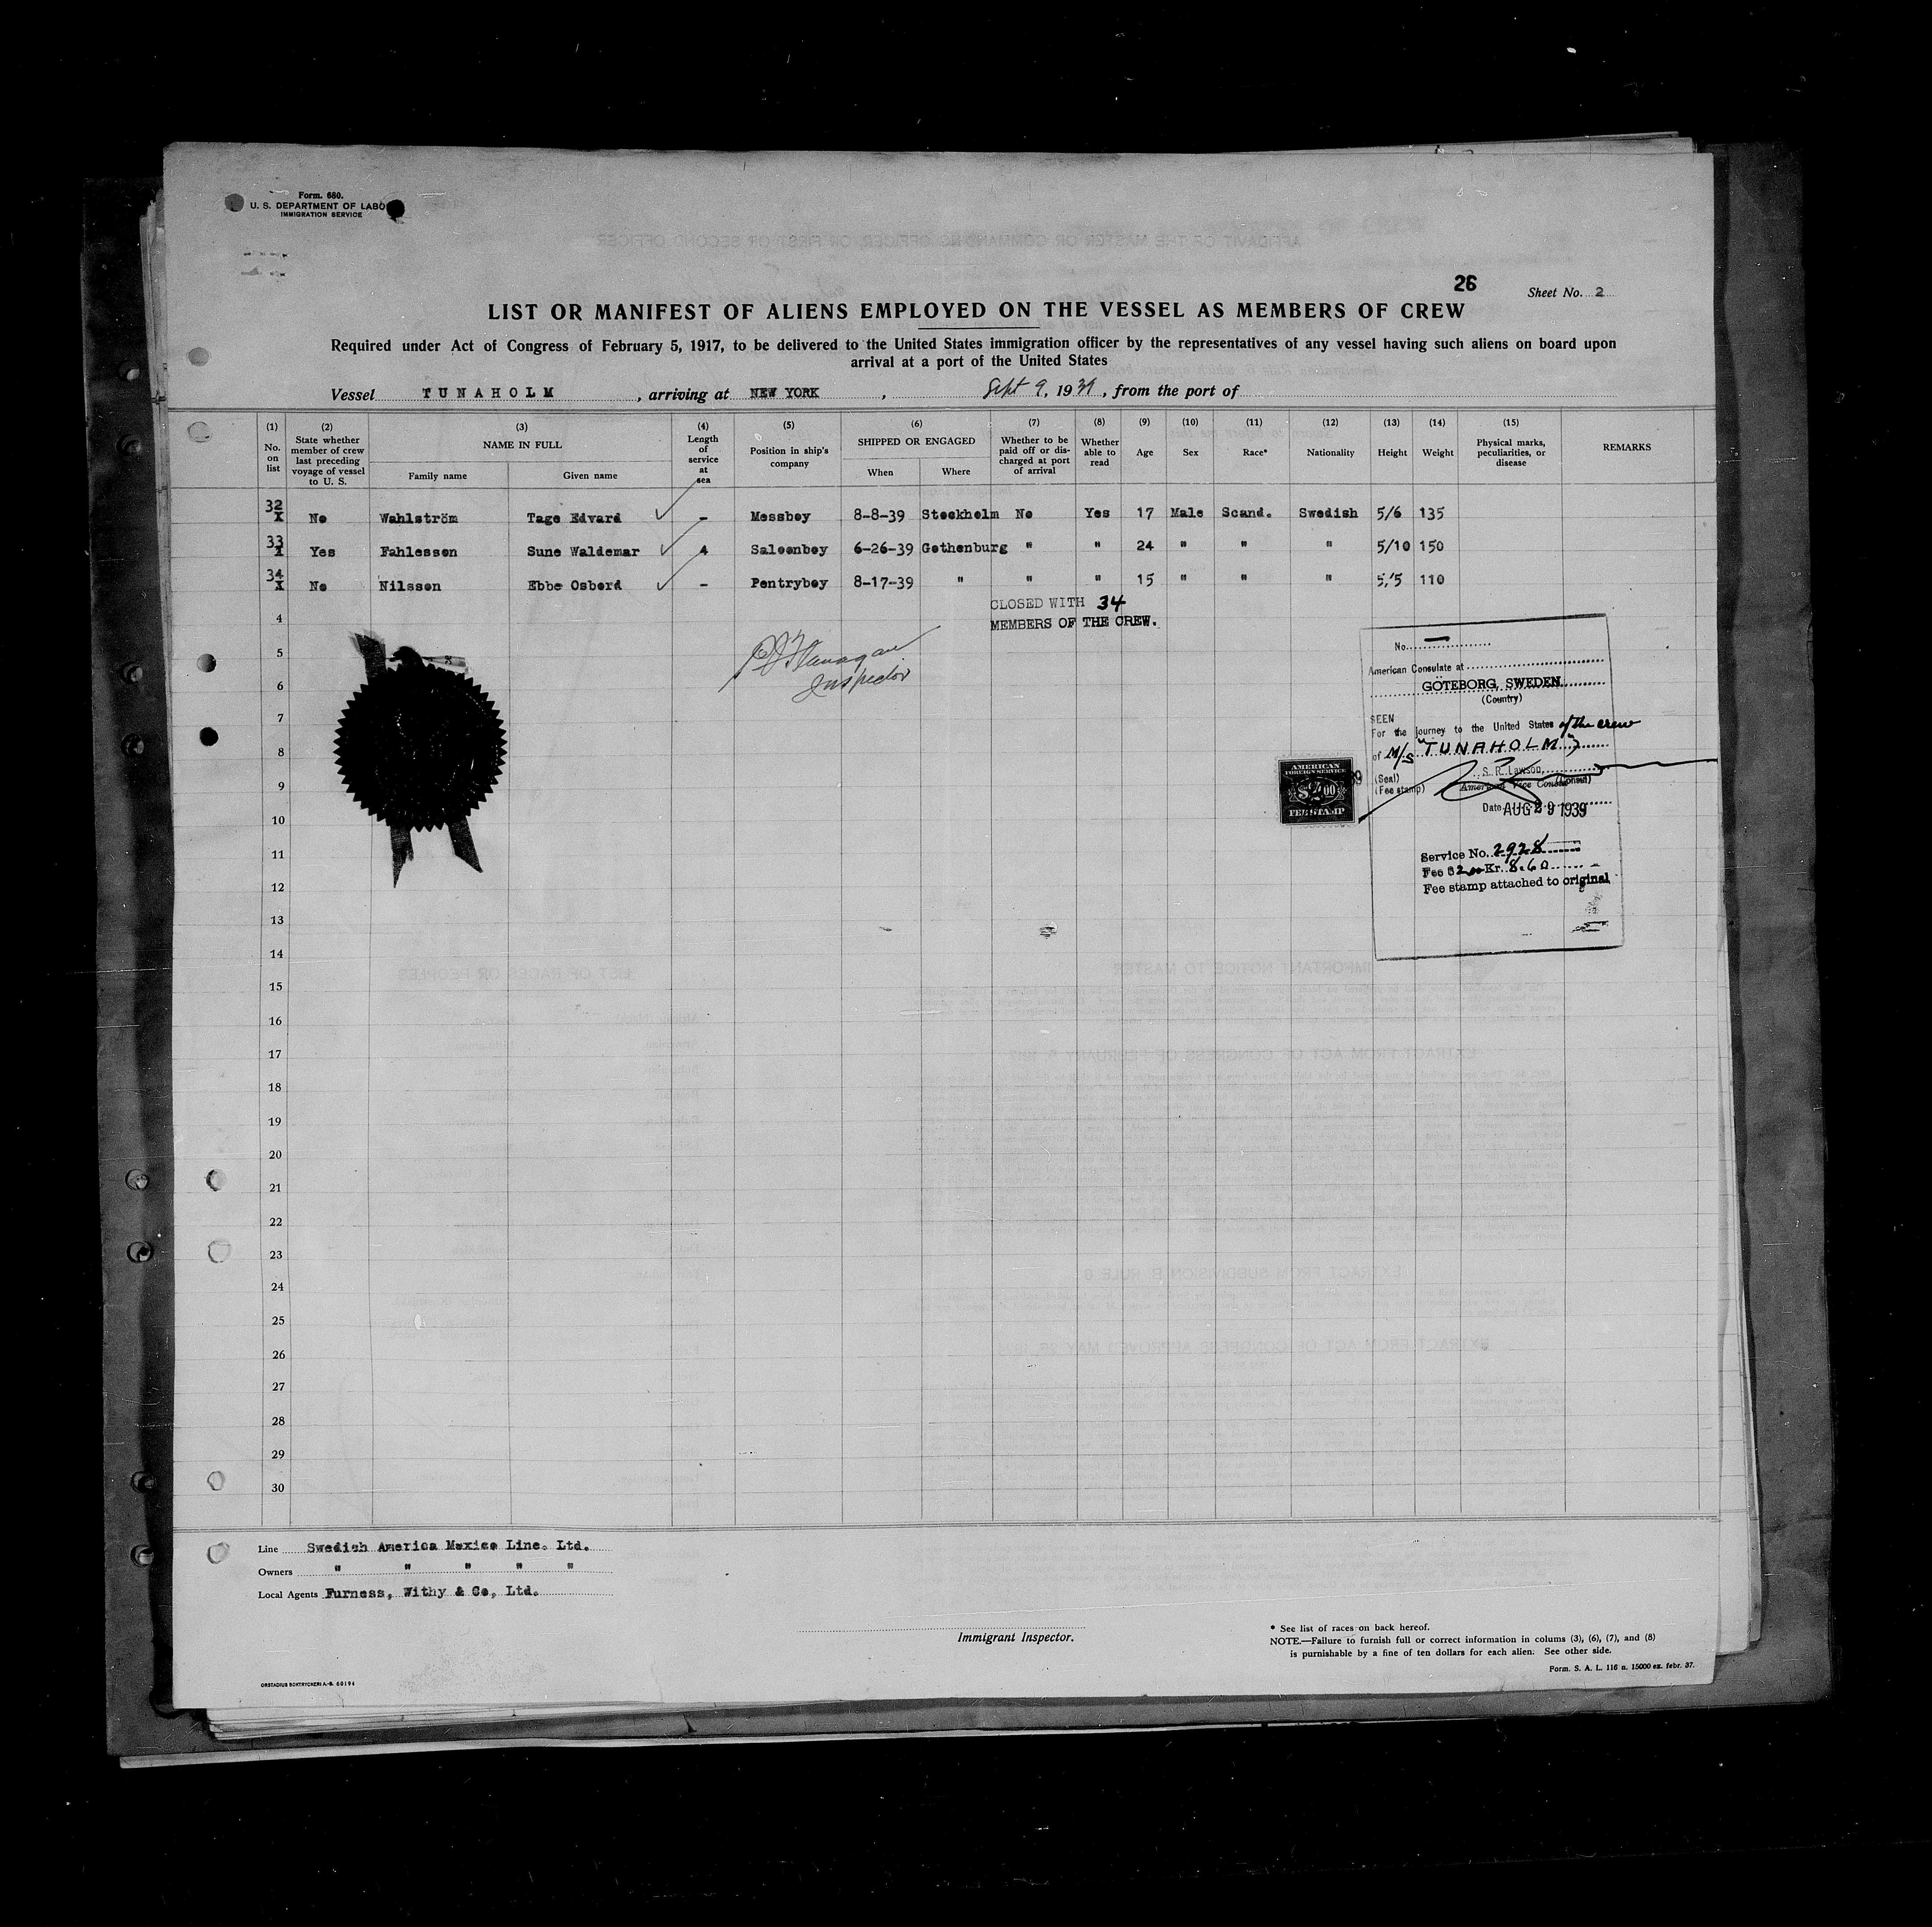 Form. 680.
U. S. DEPARTMENT OF LABO
IMMIGRATION SERVICE
26
Sheet No. 2
LIST OR MANIFEST OF ALIENS EMPLOYED ON THE VESSEL AS MEMBERS OF CREW
Required under Act of Congress of February 5, 1917, to be delivered to the United States immigration officer by the representatives of any vessel having such aliens on board upon
arrival at a port of the United States
Vessel TUNAHOLM, arriving at NEW YORK, Sept 9, 1939, from the port of
(1) No. on list
(2) State whether member of crew last preceding voyage of vessel to U. S.
(3) NAME IN FULL Family name Given name
(4) Length of service at sea
(5) Position in ship's company
(6) SHIPPED OR ENGAGED When Where
(7) Whether to be paid off or discharged at port of arrival
(8) Whether able to read
(9) Age
(10) Sex
(11) Race*
(12) Nationality
(13) Height
(14) Weight
(15) Physical marks, peculiarities, or disease
REMARKS
32 No Wahlström Tage Edvard - Messboy 8-8-39 Stockholm No Yes 17 Male Scand. Swedish 5/6 135
33 Yes Fahlesson Sune Waldemar 4 Saloonboy 6-26-39 Gothenburg " " 24 " " " 5/10 150
34 No Nilsson Ebbe Osbord - Pentryboy 8-17-39 " " " 15 " " " 5/5 110
CLOSED WITH 34
MEMBERS OF THE CREW.
4
5
6
7
8
9
10
11
12
13
14
15
16
17
18
19
20
21
22
23
24
25
26
27
28
29
30
Flanagan
Inspector
No. —
American Consulate at
GÖTEBORG, SWEDEN
(Country)
SEEN
For the journey to the United States of the crew
of M/S "TUNAHOLM"
S. R. Lawson,
(Seal) (Consul)
(Fee stamp) American Vice Consul
Date AUG 29 1939
Service No. 2928
Fee $ 2.00 Kr. 8.60
Fee stamp attached to original
AMERICAN
FOREIGN SERVICE
$2.00
FEE STAMP
Line Swedish America Mexico Line. Ltd.
Owners " " " " "
Local Agents Furness, Withy & Co, Ltd.
Immigrant Inspector.
* See list of races on back hereof.
NOTE.—Failure to furnish full or correct information in colums (3), (6), (7), and (8)
is punishable by a fine of ten dollars for each alien. See other side.
Form. S. A. L. 116 n. 15000 ex. febr. 37.
ORSTADIUS BOKTRYCKERI A.-B. 60194